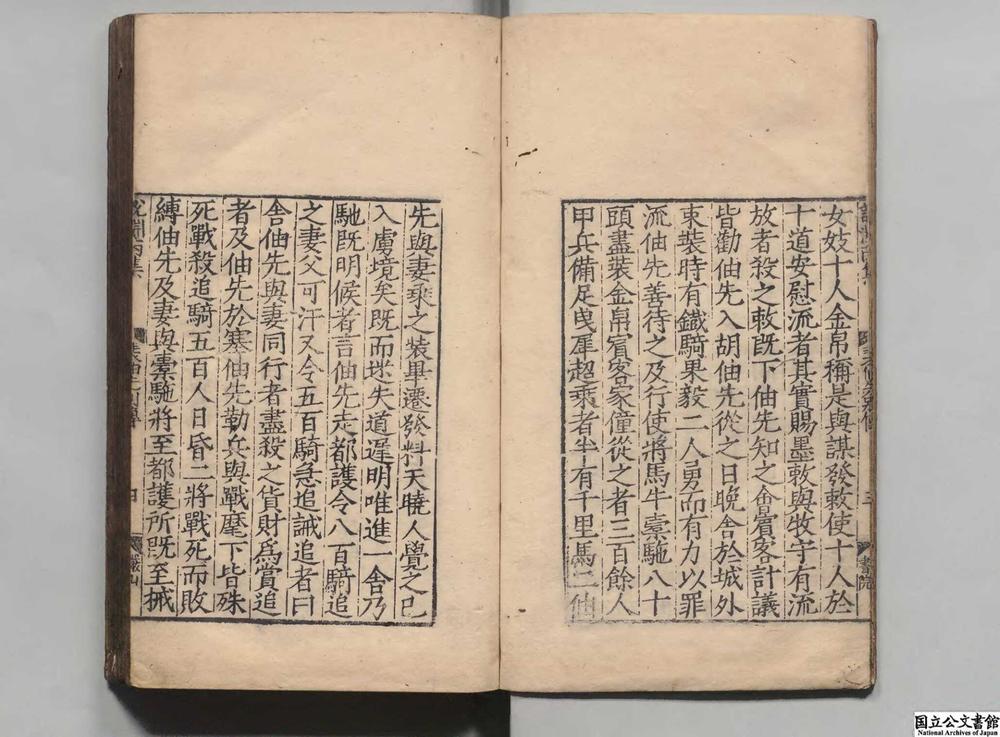 女妓十人金帛稱是與謀發敕使十人於
十道安慰流者其實賜墨敕與牧守有流
放者殺之敕既下伷先知之會賓客計議
皆勸伷先入胡伷先從之日晚舍於城外
束裝時有鐵騎果毅二人勇而有力以罪
流伷先善待之及行使將馬牛橐駞八十
頭盡裝金帛賓客家僮從之者三百餘人
甲兵備足曳犀超乘者半有千里馬二伷
先與妻乘之裝畢還發料天曉人覺之已
入虜境矣既而迷失道遲明唯進一舍乃
馳既明候者言伷先走都護令八百騎追
之妻父可汗又令五百騎急追誡追者曰
舍伷先與妻同行者盡殺之貨財為賞追
者及伷先於塞伷先勒兵與戰麾下皆殊
死戰殺追騎五百人日昏二將戰死而敗
縛伷先及妻與橐駞將至都護所既至械
說淵丙集
四
嚴山
国立公文書館
National Archives of Japan